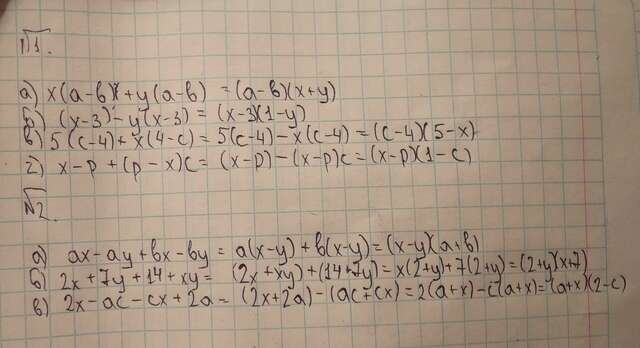 П1.
а) x(a-b) + y(a-b) = (a-b)(x+y)
б) (x-3) - y(x-3) = (x-3)(1-y)
в) 5(c-4) + x(4-c) = 5(c-4) - x(c-4) = (c-4)(5-x)
г) x-p + (p-x)c = (x-p) - (x-p)c = (x-p)(1-c)
№2.
а) ax - ay + bx - by = a(x-y) + b(x-y) = (x-y)(a+b)
б) 2x + 7y + 14 + xy = (2x + xy) + (14 + 7y) = x(2+y) + 7(2+y) = (2+y)(x+7)
в) 2x - ac - cx + 2a = (2x + 2a) - (ac + cx) = 2(a+x) - c(a+x) = (a+x)(2-c)